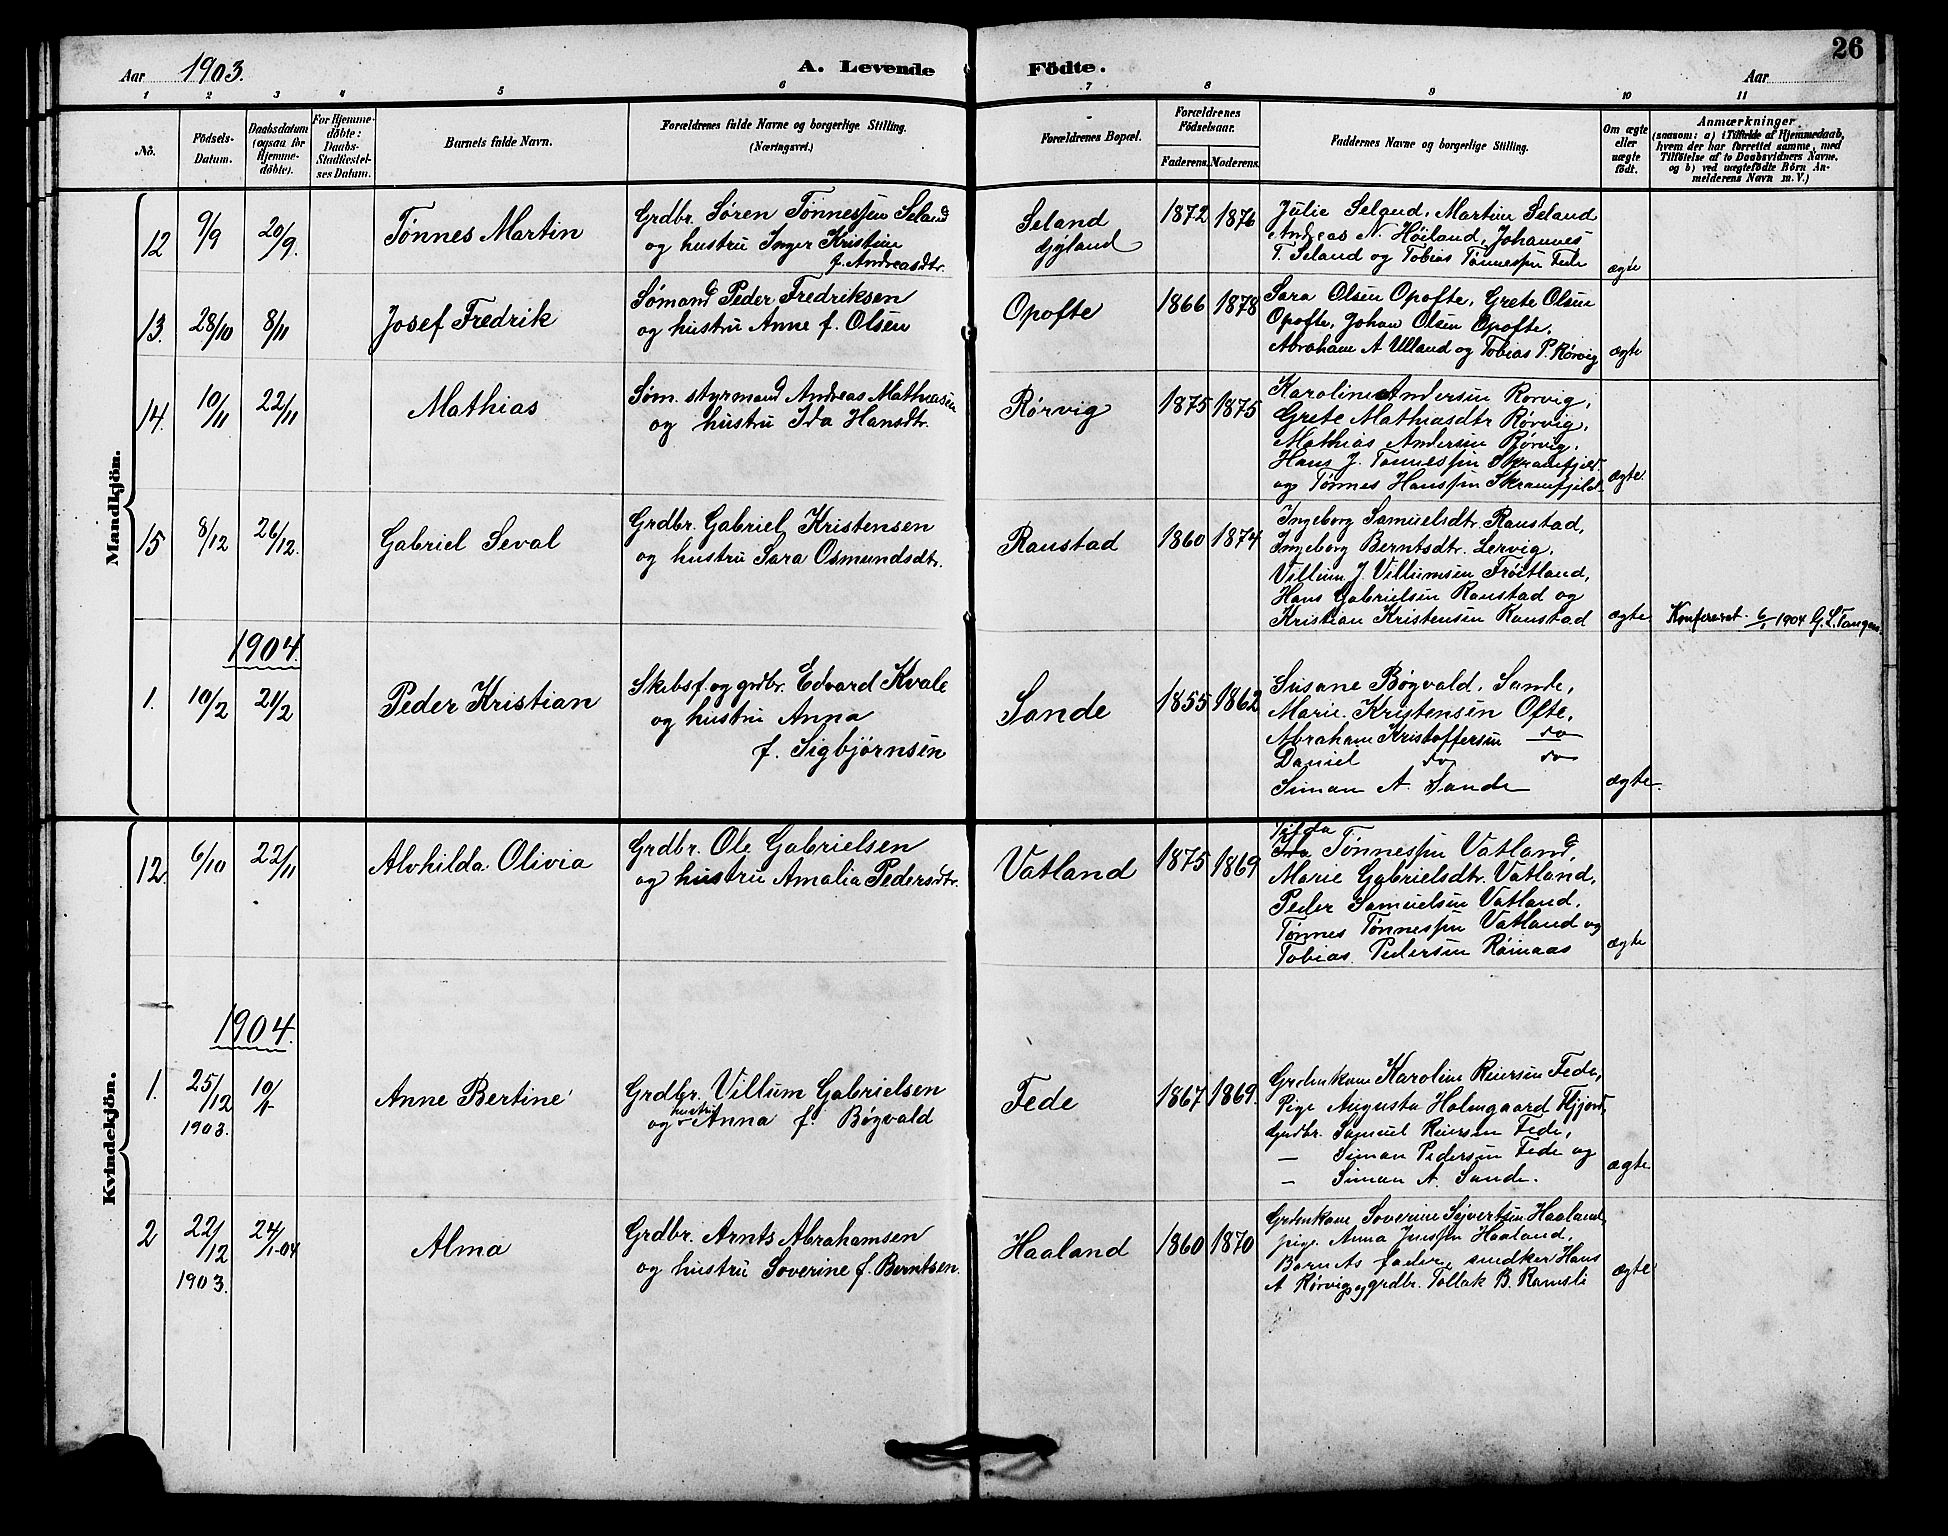 26
Aar 1903. A. Levende Födte. Aar
1 2 3 4 5 6 7 8 9 10 11
No. Födsels-Datum. Daabsdatum (ogsaa for Hjemmedöbte). For Hjemmedöbte: Daabs-Stadfæstelses Datum. Barnets fulde Navn. Forældrenes fulde Navne og borgerlige Stilling. (Næringsvei.) Forældrenes Bopæl. Forældrenes Födselsaar. Faderens. Moderens. Faddernes Navne og borgerlige Stilling. Om ægte eller uægte födt. Anmærkninger (saasom: a) i Tilfælde af Hjemmedaab, hvem der har forrettet samme, med Tilföielse af to Daabsvidners Navne, og b) ved uægtefödte Börn Anmelderens Navn m. V.)
Mandkjön.
12 9/9 20/9. Tønnes Martin
Grdbr. Søren Tønnessen Seland
og hustru Inger Kristine
f. Andreasdtr.
Seland
Gyland
1872 1876
Julie Seland, Martine Seland
Andreas N. Høiland, Johannes
T. Seland og Tobias Tønnessen Fede
ægte
13. 28/10 8/11 Josef Fredrik
Sømand Peder Fredriksen
og hustru Anne f. Olsen
Opofte
1866 1878
Sara Olsen Opofte, Grete Olsen
Opofte, Johan Olsen Opofte,
Abraham A Ulland og Tobias P. Rørvig
ægte
14. 10/11 22/11 Mathias
Søm. styrmand Andreas Mathiasen
og hustru Ida Hansdtr.
Rørvig
1875 1875
Karoline Andersen Rørvig,
Grete Mathiasdtr Rørvig,
Mathias Andersen Rørvig,
Hans J. Tønnessen Skramfjeld
og Tønnes Hanssen Skramfjeld
ægte.
15 8/12 26/12. Gabriel Seval
Grdbr. Gabriel Kristensen
og hustru Sara Osmundsdtr.
Raustad
1860 1874
Ingeborg Samuelsdtr. Raustad,
Ingeborg Berntsdtr. Lervig,
Villum J. Villumsen Frøitland,
Hans Gabrielsen Raustad og
Kristian Kristensen Raustad
ægte
Konfereret 6/1 1904 G. L. Tangen.
1904.
1. 10/2 21/2 Peder Kristian
Skibsf. og grdbr. Edvard Kvale
og hustru Anna
f. Sigbjørnsen
Sande
1855 1862
Susane Bøgvald, Sande,
Marie Kristensen Ofte,
Abraham Kristoffersen do
Daniel do do
Siman A. Sande
ægte.
Kvindekjön.
12. 6/10 22/11 Alvhilda Olivia
Grdbr. Ole Gabrielsen
og hustru Amalia Pedersdtr.
Vatland
1875 1869
Tilda
Tønnessen Vatland,
Marie Gabrielsdtr. Vatland,
Peder Samuelsen Vatland,
Tønnes Tønnessen Vatland og
Tobias Pedersen Røinaas
ægte
1904.
1. 25/12 1903. 10/1 Anne Bertine
Grdbr. Villum Gabrielsen
og hustru Anna f. Bøgvald
Fede
1867 1869.
Grdenkone Karoline Reiersen Fede,
Pige Augusta Holmgaard Fjord,
Grdbr. Samuel Reiersen Fede,
— Siman Pedersen Fede og
— Siman A. Sande.
ægte
2 22/12 1903. 24/1-04 Alma
Grdbr. Arnts Abrahamsen
og hustru Soverine f. Berntsen.
Haaland
1860 1870
Grdenkone Soverine Syvertsen Haaland,
pige Anna Jenssen Haaland,
Barnets fader, snedker Hans
A Rørvig og grdbr. Tollak B. Ramsli
ægte